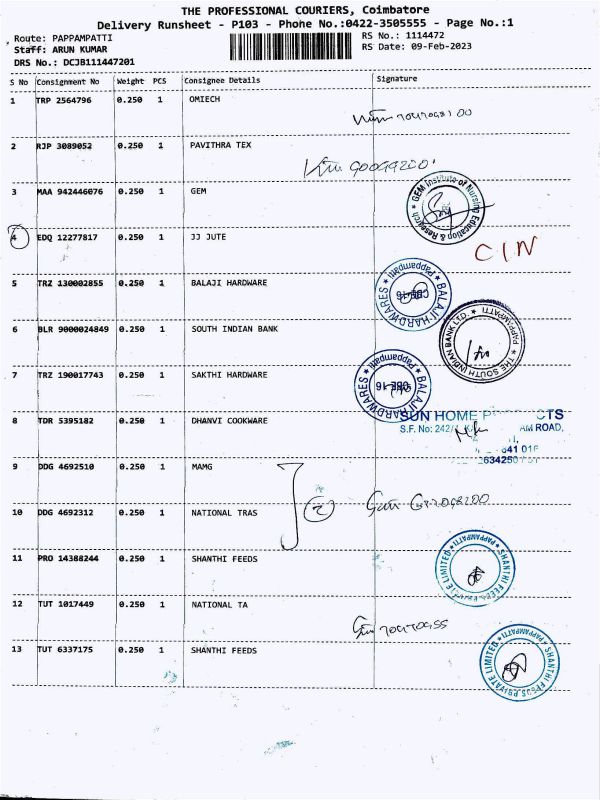 THE PROFESSIONAL COURIERS, Coimbatore
Delivery Runsheet - P103 - Phone No.:0422-3505555 - Page No.:1
Route: PAPPAMPATTI
Staff: ARUN KUMAR
DRS No.: DCJB111447201
RS No.: 1114472
RS Date: 09-Feb-2023
S No Consignment No Weight PCS Consignee Details Signature
1 TRP 2564796 0.250 1 OMIECH
2 RJP 3089052 0.250 1 PAVITHRA TEX
3 MAA 942446076 0.250 1 GEM
GEM Institute of Nursing Education & Research
4 EDQ 12277817 0.250 1 JJ JUTE
CIN
5 TRZ 130002855 0.250 1 BALAJI HARDWARE
BALAJI HARDWARES Pappampatti
6 BLR 9000024849 0.250 1 SOUTH INDIAN BANK
THE SOUTH INDIAN BANK LTD. PAPPAMPATTI
7 TRZ 190017743 0.250 1 SAKTHI HARDWARE
BALAJI HARDWARES Pappampatti
8 TDR 5395182 0.250 1 DHANVI COOKWARE
SUN HOME
S.F. No: 242/
ROAD,
9 DDG 4692510 0.250 1 MAMG
2
10 DDG 4692312 0.250 1 NATIONAL TRAS
11 PRO 14388244 0.250 1 SHANTHI FEEDS
SHANTHI FEEDS PRIVATE LIMITED PAPPAMPATTI
12 TUT 1017449 0.250 1 NATIONAL TA
13 TUT 6337175 0.250 1 SHANTHI FEEDS
SHANTHI FEEDS PRIVATE LIMITED PAPPAMPATTI